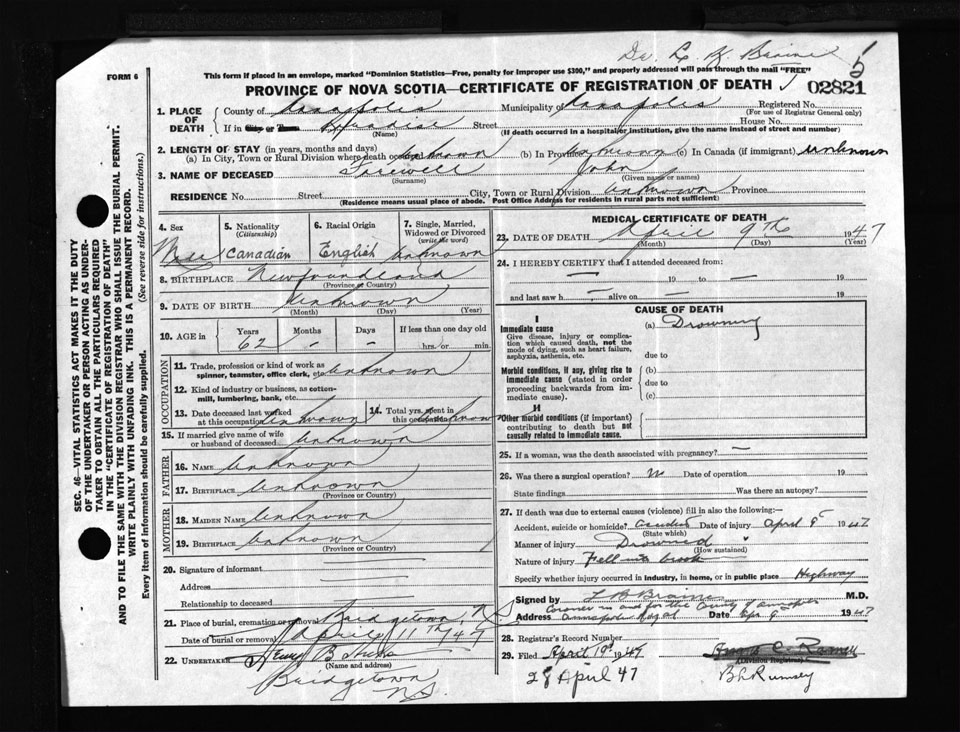 Dr. L. B. Braine
FORM 6
This form if placed in an envelope, marked "Dominion Statistics—Free, penalty for improper use $300," and properly addressed will pass through the mail "FREE"
PROVINCE OF NOVA SCOTIA—CERTIFICATE OF REGISTRATION OF DEATH 02821
1. PLACE OF DEATH County of Annapolis Municipality of Annapolis Registered No.
(For use of Registrar General only)
If in City or Town Paradise Street House No.
(Name) (If death occurred in a hospital or institution, give the name instead of street and number)
2. LENGTH OF STAY (in years, months and days)
(a) In City, Town or Rural Division where death occurred unknown (b) In Province unknown (c) In Canada (if immigrant) unknown
3. NAME OF DECEASED Farewell John
(Surname) (Given name or names)
RESIDENCE No. Street City, Town or Rural Division unknown Province
(Residence means usual place of abode. Post Office Address for residents in rural parts not sufficient)
SEC. 46—VITAL STATISTICS ACT MAKES IT THE DUTY
OF THE UNDERTAKER OR PERSON ACTING AS UNDER-
TAKER TO OBTAIN ALL THE PARTICULARS REQUIRED
IN THE "CERTIFICATE OF REGISTRATION OF DEATH"
AND TO FILE THE SAME WITH THE DIVISION REGISTRAR WHO SHALL ISSUE THE BURIAL PERMIT.
WRITE PLAINLY WITH UNFADING INK. THIS IS A PERMANENT RECORD.
Every item of information should be carefully supplied. (See reverse side for instructions.)
4. Sex 5. Nationality (Citizenship) 6. Racial Origin 7. Single, Married, Widowed or Divorced (write the word)
Male Canadian English unknown
8. BIRTHPLACE Newfoundland
(Province or Country)
9. DATE OF BIRTH unknown
(Month) (Day) (Year)
10. AGE in Years Months Days If less than one day old
62 - - hrs. or min.
OCCUPATION
11. Trade, profession or kind of work as
spinner, teamster, office clerk, etc. unknown
12. Kind of industry or business, as cotton-
mill, lumbering, bank, etc.
13. Date deceased last worked
at this occupation unknown
14. Total yrs. spent in
this occupation unknown
15. If married give name of wife
or husband of deceased unknown
FATHER
16. NAME unknown
17. BIRTHPLACE unknown
(Province or Country)
MOTHER
18. MAIDEN NAME unknown
19. BIRTHPLACE unknown
(Province or Country)
20. Signature of informant
Address
Relationship to deceased
21. Place of burial, cremation or removal Bridgetown, N.S.
Date of burial or removal April 11th 47
22. UNDERTAKER Henry B
(Name and address)
Bridgetown
N.S.
MEDICAL CERTIFICATE OF DEATH
23. DATE OF DEATH April 9th 1947
(Month) (Day) (Year)
24. I HEREBY CERTIFY that I attended deceased from:
— 19 to — 19
and last saw h — alive on — 19
CAUSE OF DEATH
I
Immediate cause (a) Drowning
Give disease, injury or complica-
tion which caused death, not the
mode of dying, such as heart failure,
asphyxia, asthenia, etc. due to
Morbid conditions, if any, giving rise to (b)
immediate cause (stated in order due to
proceeding backwards from im-
mediate cause). (c)
II
Other morbid conditions (if important)
contributing to death but not
causally related to immediate cause.
25. If a woman, was the death associated with pregnancy? —
26. Was there a surgical operation? no Date of operation 19
State findings Was there an autopsy?
27. If death was due to external causes (violence) fill in also the following:—
Accident, suicide or homicide? Date of injury April 9 1947
(State which)
Manner of injury Drowned
(How sustained)
Nature of injury Fell into brook
Specify whether injury occurred in industry, in home, or in public place Highway
Signed by L B Braine M.D.
Coroner in and for the County of Annapolis
Address Annapolis Royal Date Apr 9 1947
28. Registrar's Record Number
29. Filed April 19 1947
(Division Registrar)
28 April 47 B L Rumsey